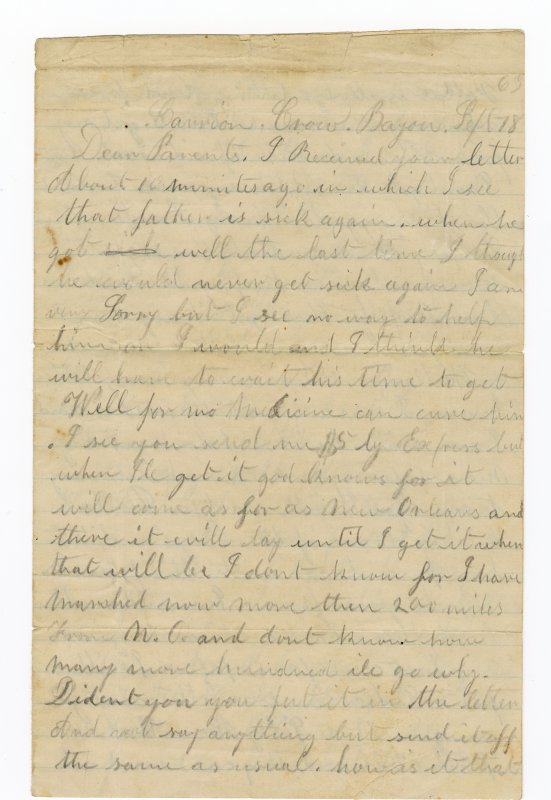 63
Carrion. Crow. Bayou. Sept 18
Dear Parents. I Received your letter
About 10 minutes ago in which I see
that father is sick again. when he
got well the last time I though
he would never get sick again I am
very Sorry but I see no way to help
him or I would and I think he
will have to wait his time to get
Well for no Medicine can cure him
. I see you send me $5 by Express but
when Ile get it god knows for it
will come as for as New Orleans and
there it will lay until I get it when
that will be I dont know for I have
Marshed now more then 200 miles
from N. O. and dont know how
many more hundred ile go why.
Dident you you put it in the letter
And not say anything but send it off
the same as usual. how as it that